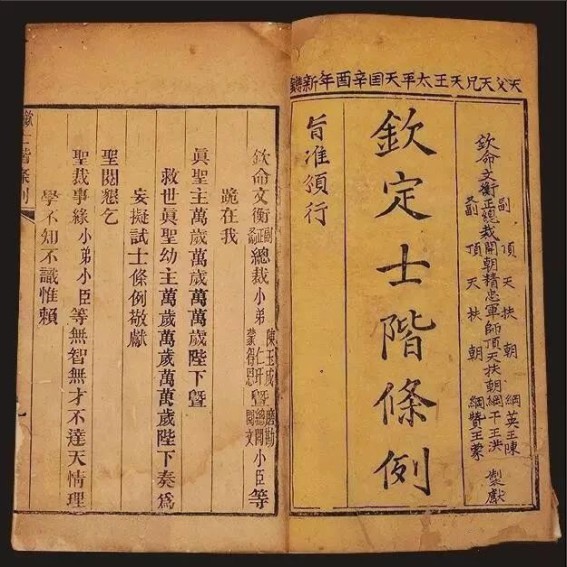 天父天兄天王太平天囯辛酉年新鐫
副 頂天扶朝綱英王陳
欽命文衡正總裁開朝精忠軍師頂天扶朝綱干王洪 製獻
又副 頂天扶朝綱贊王蒙
欽定士階條例
旨准頒行
欽命文衡副正又副總裁小弟陳玉成仁玕蒙得恩曁磨勘總閱閱文小臣等
跪在我
眞聖主萬歲萬歲萬萬歲陛下曁
救世眞聖幼主萬歲萬歲萬萬歲陛下奏爲
妄擬試士條例敬獻
聖閱懇乞
聖裁事緣小弟小臣等無智無才不達天情理
學不知不識惟賴
士階條例